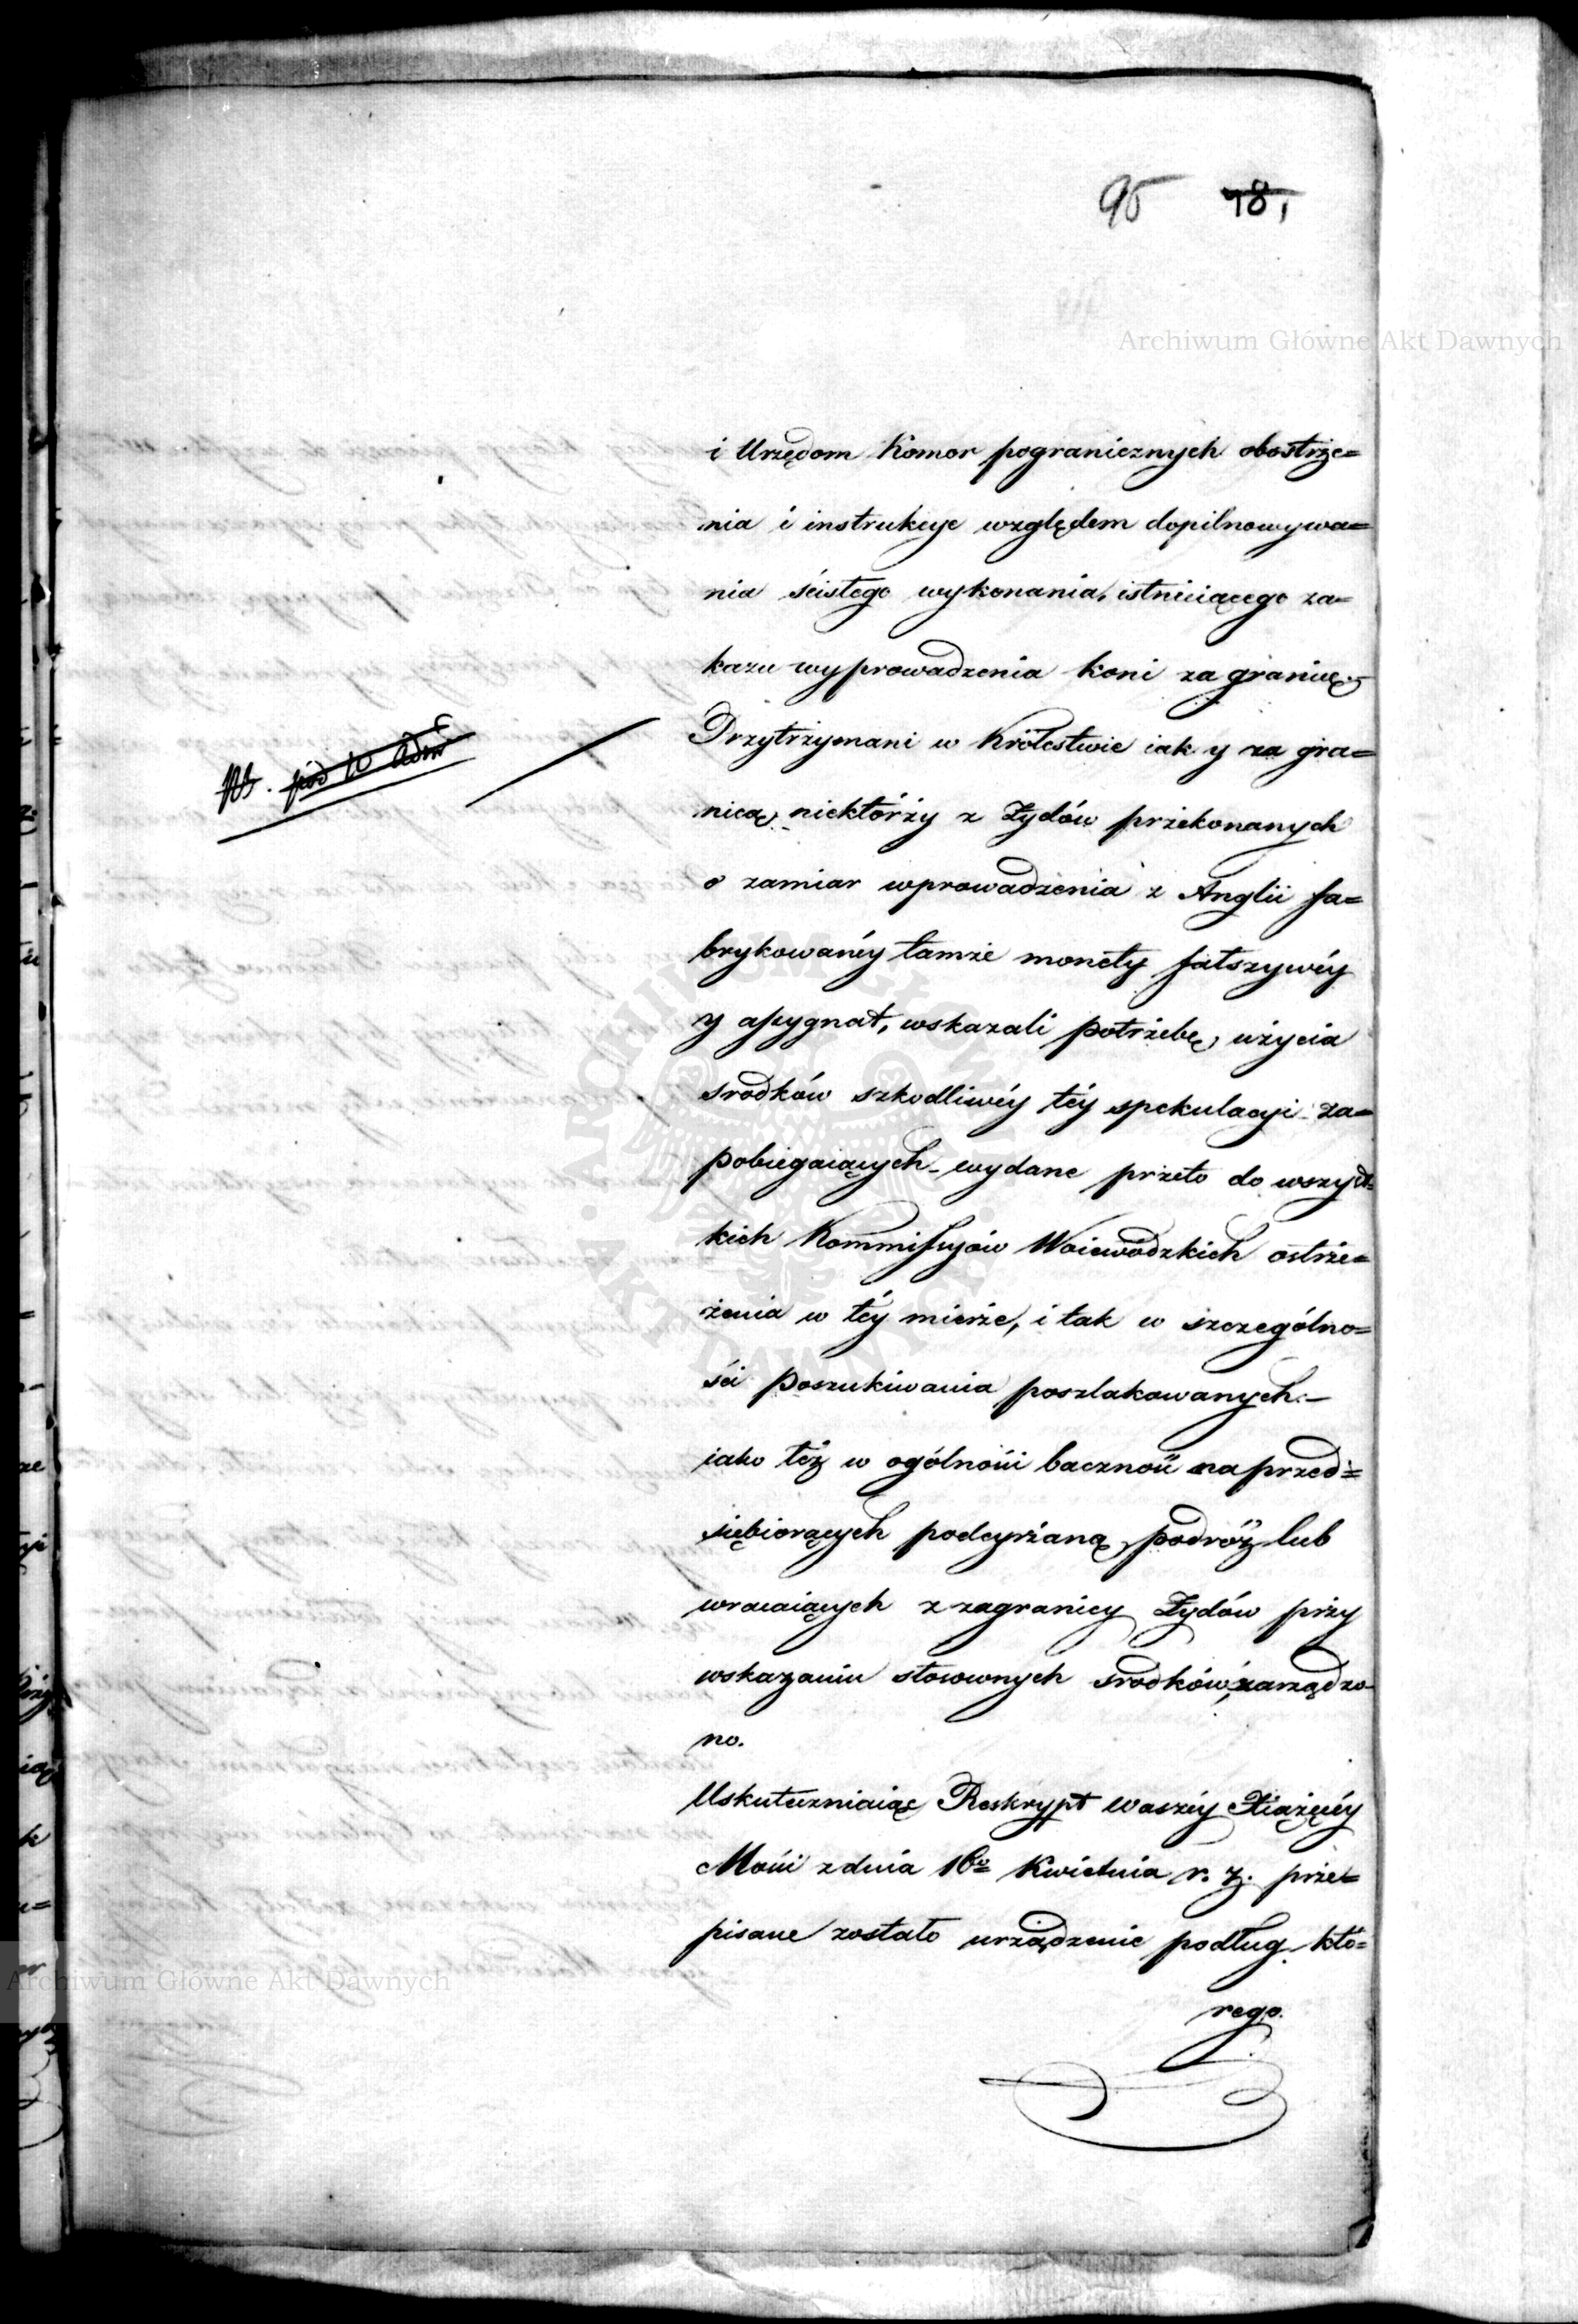 95 48,
Archiwum Główne Akt Dawnych
i Urzędom Komor pogranicznych obostrże=
nia i instrukcye względem dopilnowywa=
nia ścisłego wykonania, istnieiącego za=
kazu wyprowadzenia koni za granicę.
Przytrzymani w Królestwie iak y za gra=
NB. pod to Adm
nicą, niektórży z Żydów przekonanych
o zamiar wprowadzenia z Anglii fa=
brykowanéy tamże monety fałszywéy
y assygnat, wskazali potrzebę, użycia
srodków szkodliwéy téy spekulacyi za=
pobiegaiących wydane przeto do wszyst=
kich Kommissyów Woiewódzkich ostrże=
żenia w téy mierże, i tak w szczególno=
ści poszukiwania poszlakowanych.—
iako téż w ogólności baczność na przed=
siębiorących podeyrżaną podróż lub
wracaiących z zagranicy Żydów przy
wskazaniu stosownych srodków, zarządzo
no.
Uskuteczniaiąc Reskrypt Waszéy Xiążęcéy
Mości z dnia 16go Kwietnia r. z. prze=
pisane zostało urządzenie podług któ=
rego.
Archiwum Główne Akt Dawnych
ARCHIWUM GŁÓWNE · AKT DAWNYCH ·